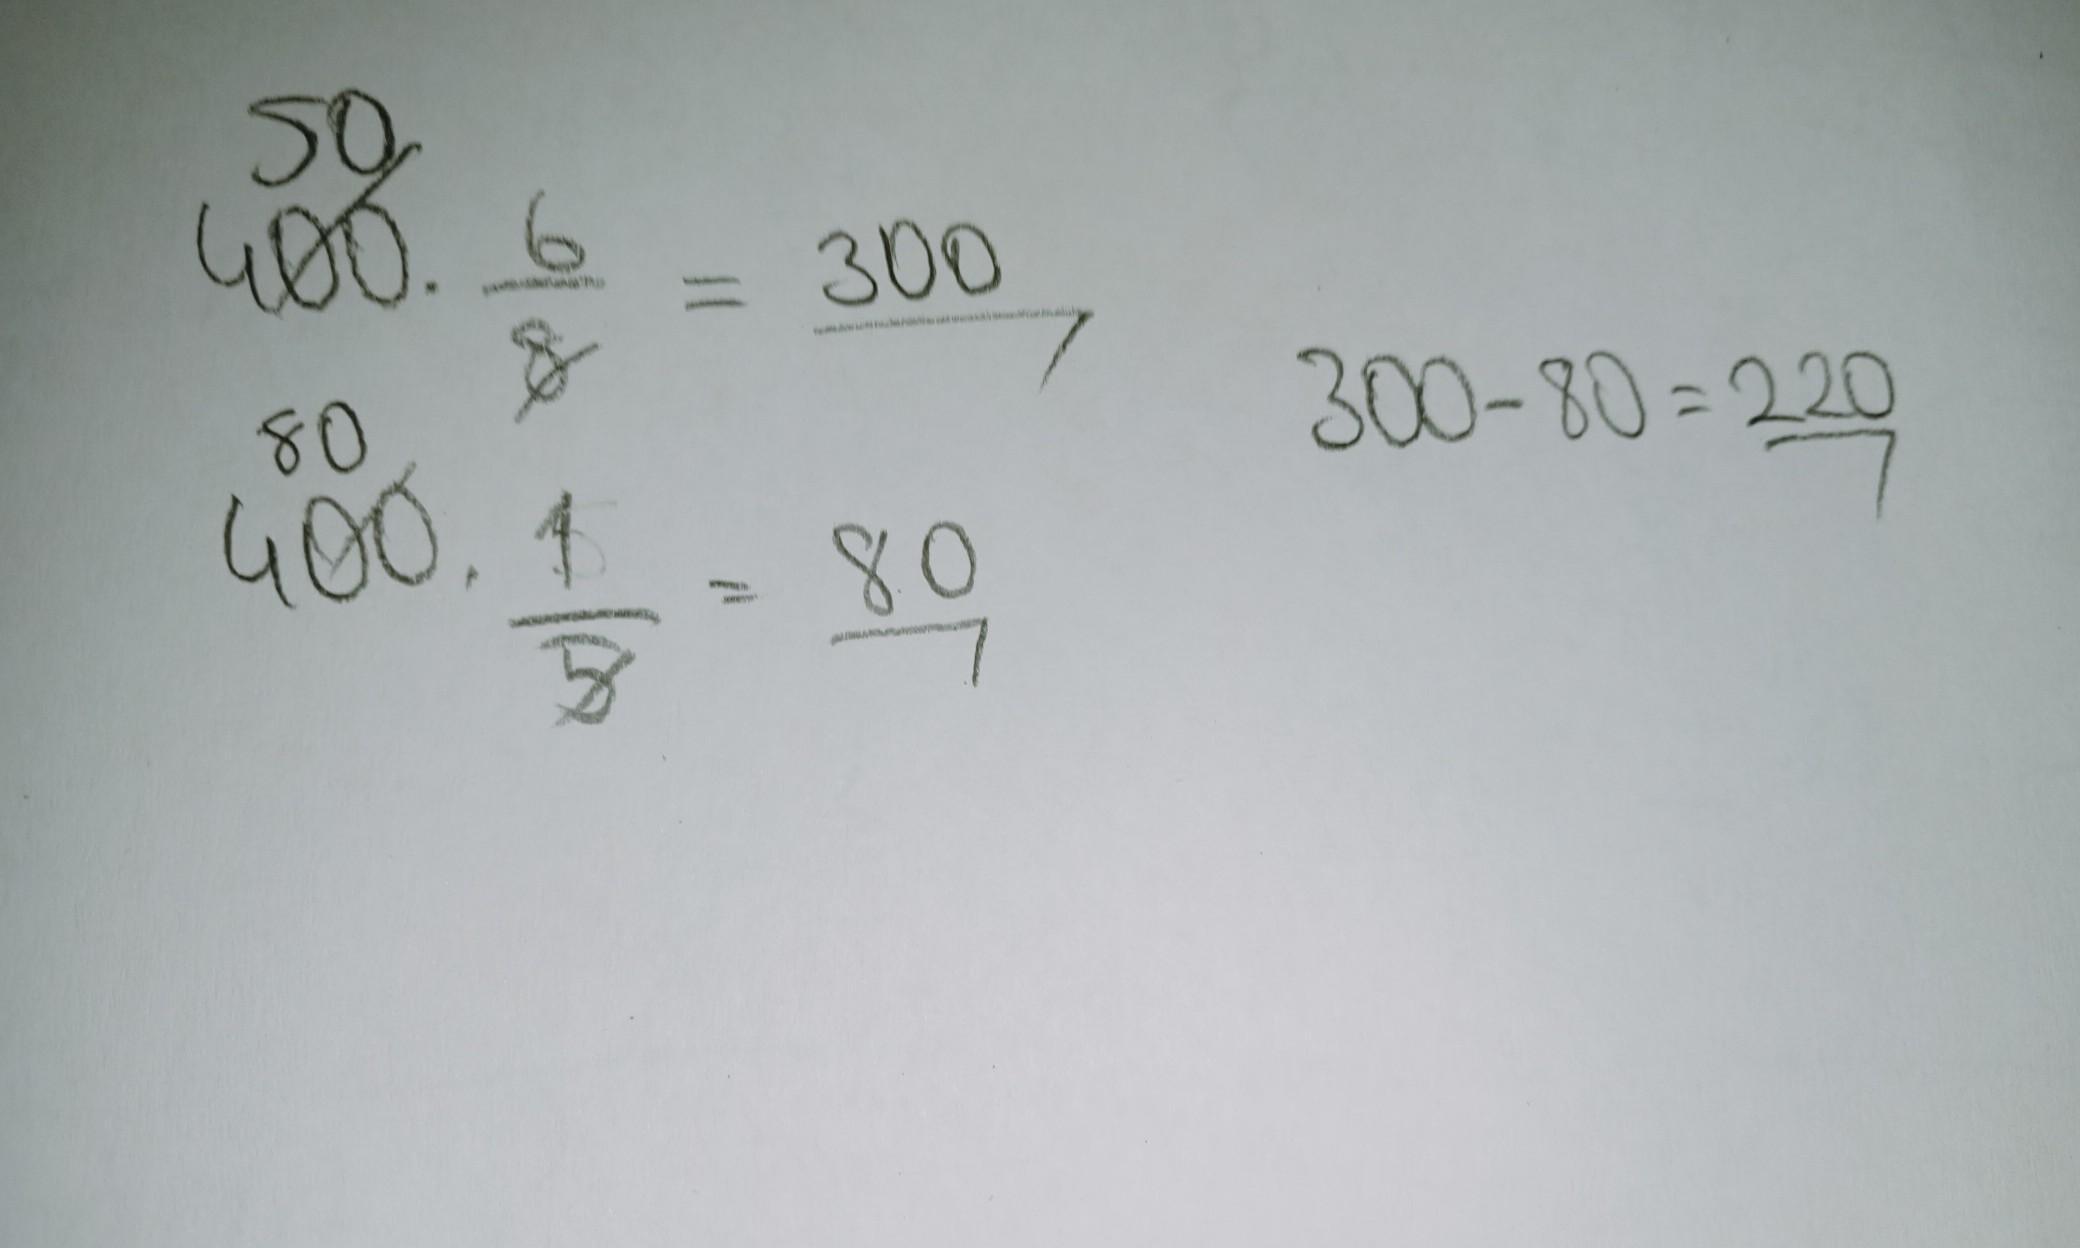 50
400 . 6/8 = 300
80
400 . 1/5 = 80
300 - 80 = 220